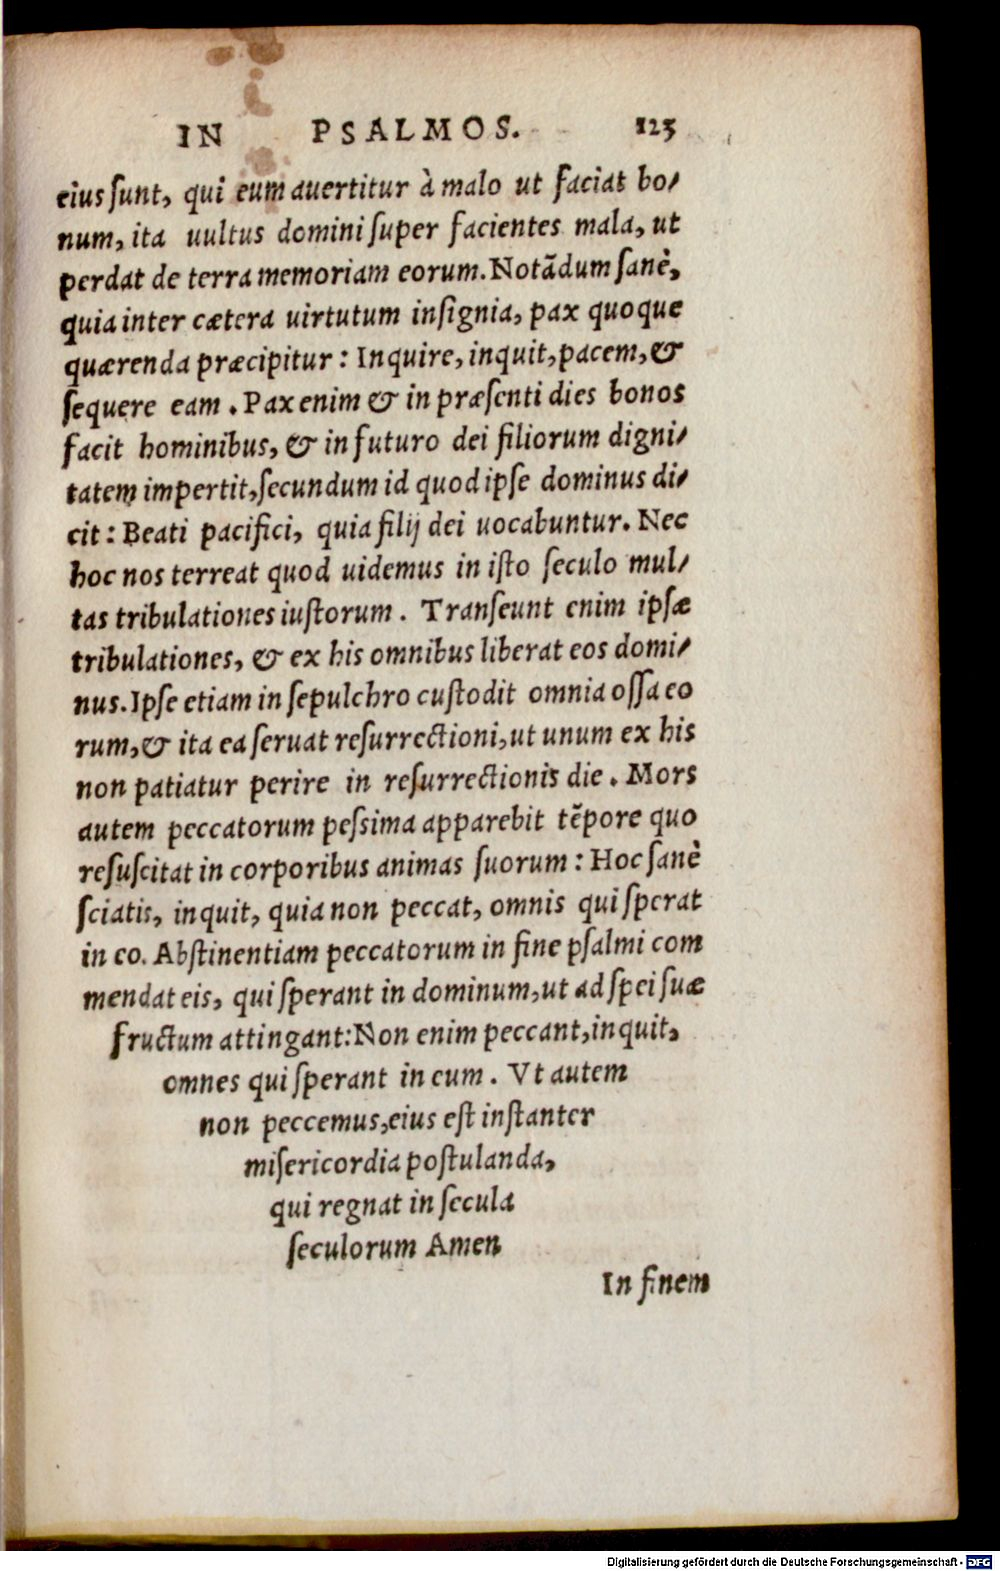 IN PSALMOS. 125
eius sunt, qui eum auertitur à malo ut faciat bo⸗
num, ita uultus domini super facientes mala, ut
perdat de terra memoriam eorum. Notãdum sanè,
quia inter cætera uirtutum insignia, pax quoque
quærenda præcipitur: Inquire, inquit, pacem, &
sequere eam. Pax enim & in præsenti dies bonos
facit hominibus, & in futuro dei filiorum digni⸗
tatem impertit, secundum id quod ipse dominus di⸗
cit: Beati pacifici, quia filij dei uocabuntur. Nec
hoc nos terreat quod uidemus in isto seculo mul⸗
tas tribulationes iustorum. Transeunt enim ipsæ
tribulationes, & ex his omnibus liberat eos domi⸗
nus. Ipse etiam in sepulchro custodit omnia ossa eo
rum, & ita ea seruat resurrectioni, ut unum ex his
non patiatur perire in resurrectionis die. Mors
autem peccatorum pessima apparebit tẽpore quo
resuscitat in corporibus animas suorum: Hoc sanè
sciatis, inquit, quia non peccat, omnis qui sperat
in eo. Abstinentiam peccatorum in fine psalmi com
mendat eis, qui sperant in dominum, ut ad spei suæ
fructum attingant: Non enim peccant, inquit,
omnes qui sperant in eum. Vt autem
non peccemus, eius est instanter
misericordia postulanda,
qui regnat in secula
seculorum Amen
In finem
Digitalisierung gefördert durch die Deutsche Forschungsgemeinschaft - DFG